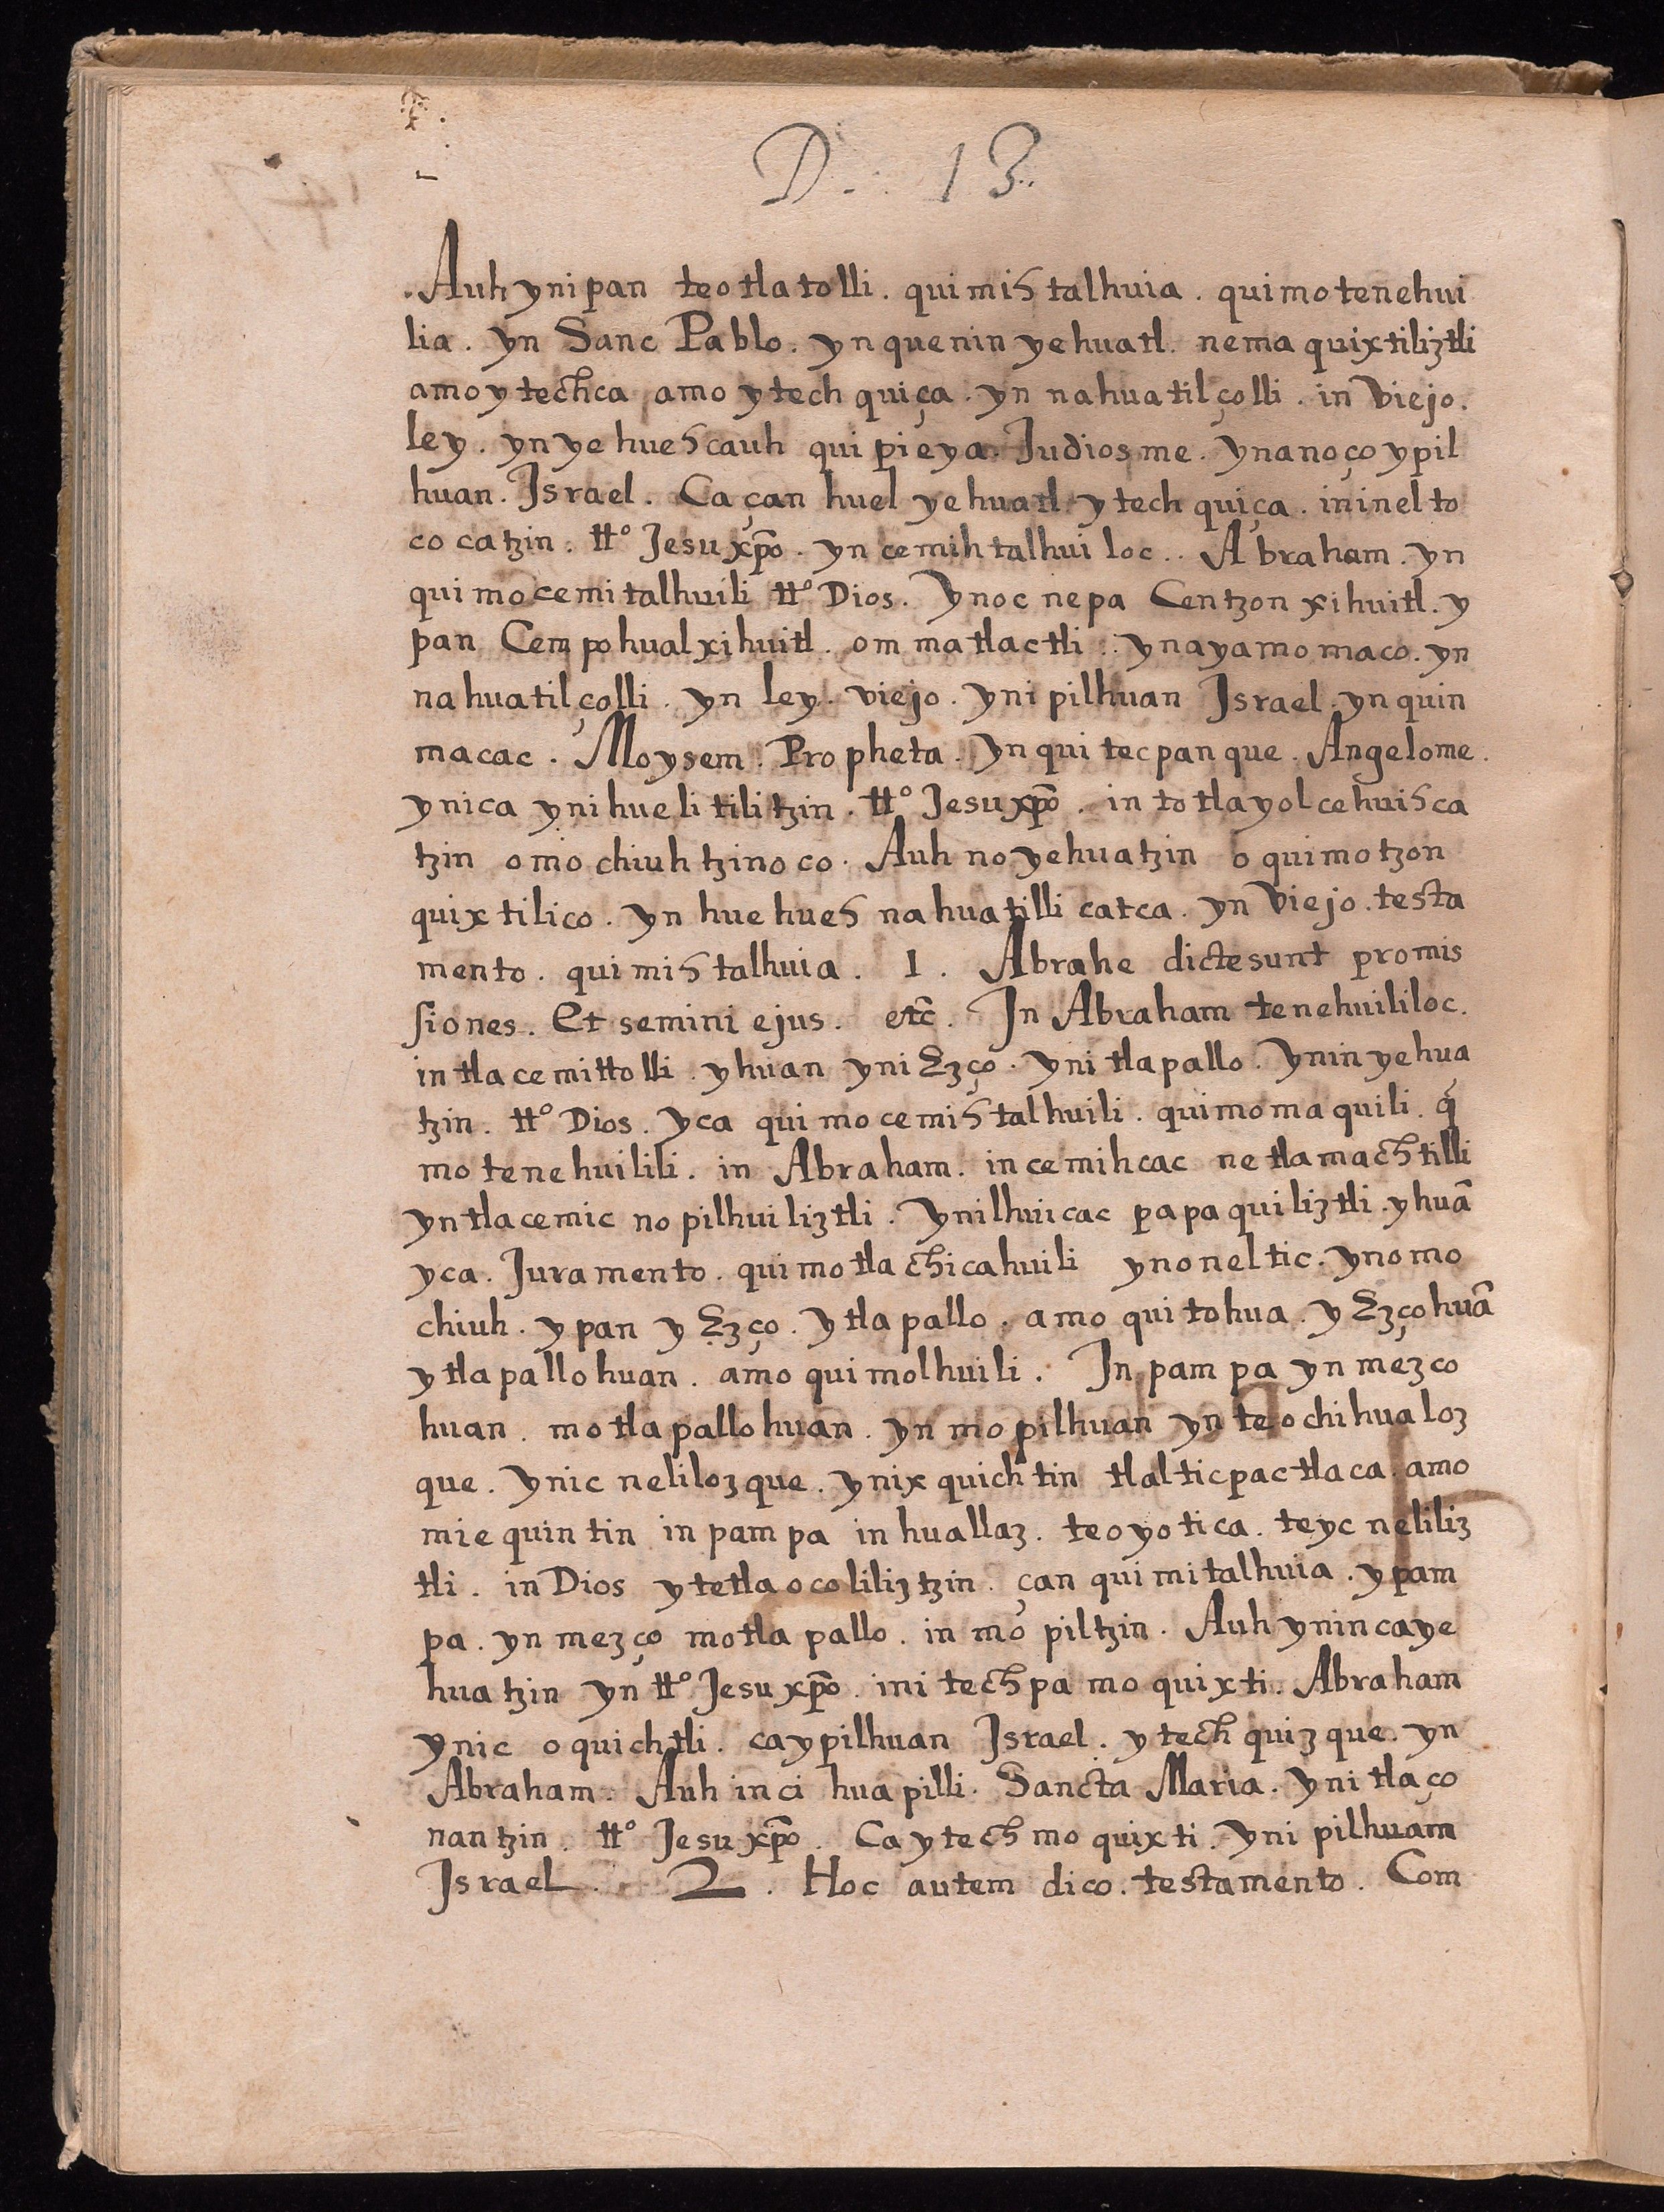 D. 13
Auh ynipan teotlatolli. quimistalhuia. quimotenehui
lia. yn Sanc Pablo. ynquenin yehuatl. nemaquixtiliztli
amo ytechca amo ytech quiça. yn nahuatilçolli. in Viejo.
ley. yn ye huescauh quipieya. Judiosme. ynanoço ypil
huan. Israel. Ca çan huel yehuatl ytech quiça. ininelto
cocatzin. ttº Jesuxp̃o. yn cemihtalhuiloc.. Abraham. yn
quimocemitalhuili ttº Dios. Ynoc nepa Centzon xihuitl. y
pan Cempohualxihuitl. ommatlactli.. ynayamo maco. yn
nahuatilçolli. yn ley. viejo. ynipilhuan Israel. ynquin
macac. Moysem. Propheta. Ynquitecpanque. Angelome.
ynica ynihuelitilitzin. ttº Jesuxp̃o. in totlayolcehuisca
tzin omochiuhtzinoco. Auh noyehuatzin oquimotzon
quixtilico. yn huehues nahuatilli catca. yn Viejo. testa
mento. quimistalhuia. 1. Abrahe dictesunt promis
siones. Et semini ejus. etc̃. In Abraham tenehuililoc.
in tlacemittolli. yhuan yniEzço. yni tlapallo. Ynin yehua
tzin. ttº Dios. yca quimocemistalhuili. quimomaquili. q̃
motenehuilili. in Abraham. incemihcac netlamachtilli
yntlacemicnopilhuiliztli. Ynilhuicac papaquiliztli. yhuã
yca. Juramento. quimotlachicahuili ynoneltic. ynomo
chiuh. ypan yEzço. ytlapallo. amo quitohua. yEzçohuã
ytlapallohuan. amo quimolhuili. In pampa yn mezco
huan. motlapallohuan. yn mopilhuan yn teochihualoz
que. ynic nelilozque. ynixquichtin tlalticpactlaca. amo
miequintin inpampa in huallaz. teoyotica. teycneliliz
tli. in Dios ytetlaocoliliztzin. çan quimitalhuia. ypam
pa. yn mezço motlapallo. in mopiltzin. Auh ynin caye
huatzin yn ttº Jesuxp̃o. initechpa moquixti. Abraham
ynic oquichtli. caypilhuan Israel. ytech quizque. yn
Abraham. Auh in cihuapilli. Sancta Maria. Ynitlaço
nantzin. ttº Jesuxp̃o. Ca ytech moquixti. Yni pilhuam
Israel. 2. Hoc autem dico. testamento. Com